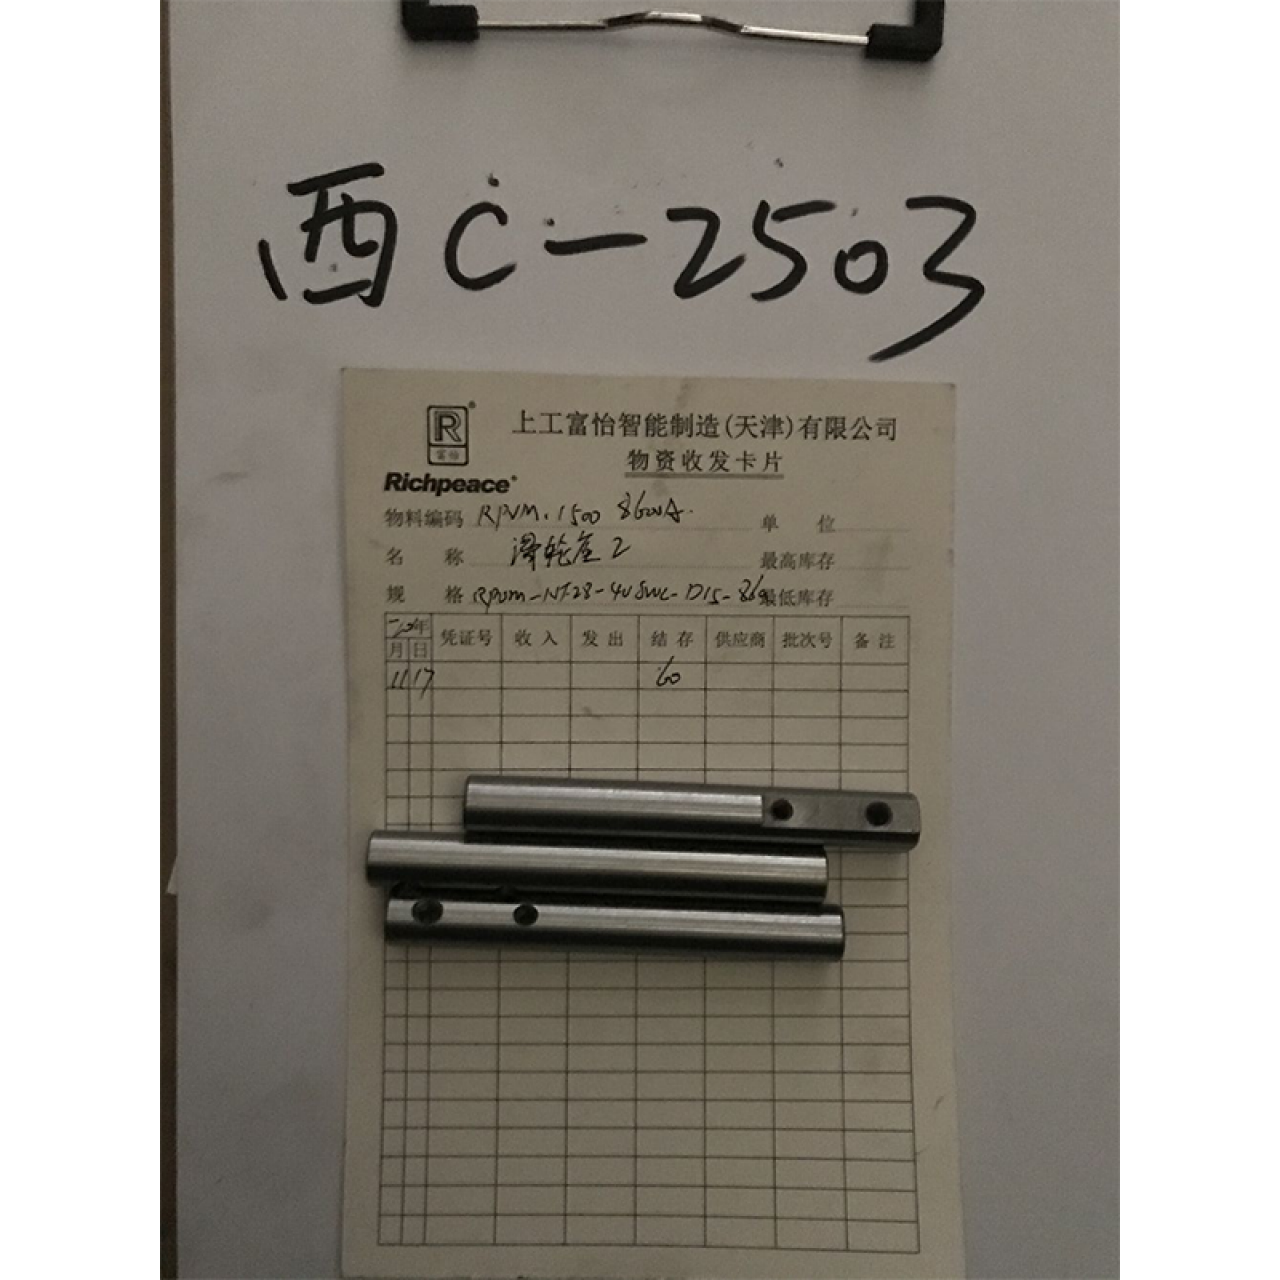 西C-2503
R®
富怡
Richpeace®
上工富怡智能制造(天津)有限公司
物资收发卡片
物料编码 RPVM.1500 8600A. 单 位
名 称 滑轮 2 最高库存
规 格 RPVM-NT28-4 最低库存
年 凭证号 收入 发出 结存 供应商 批次号 备注
月 日
11 17 60